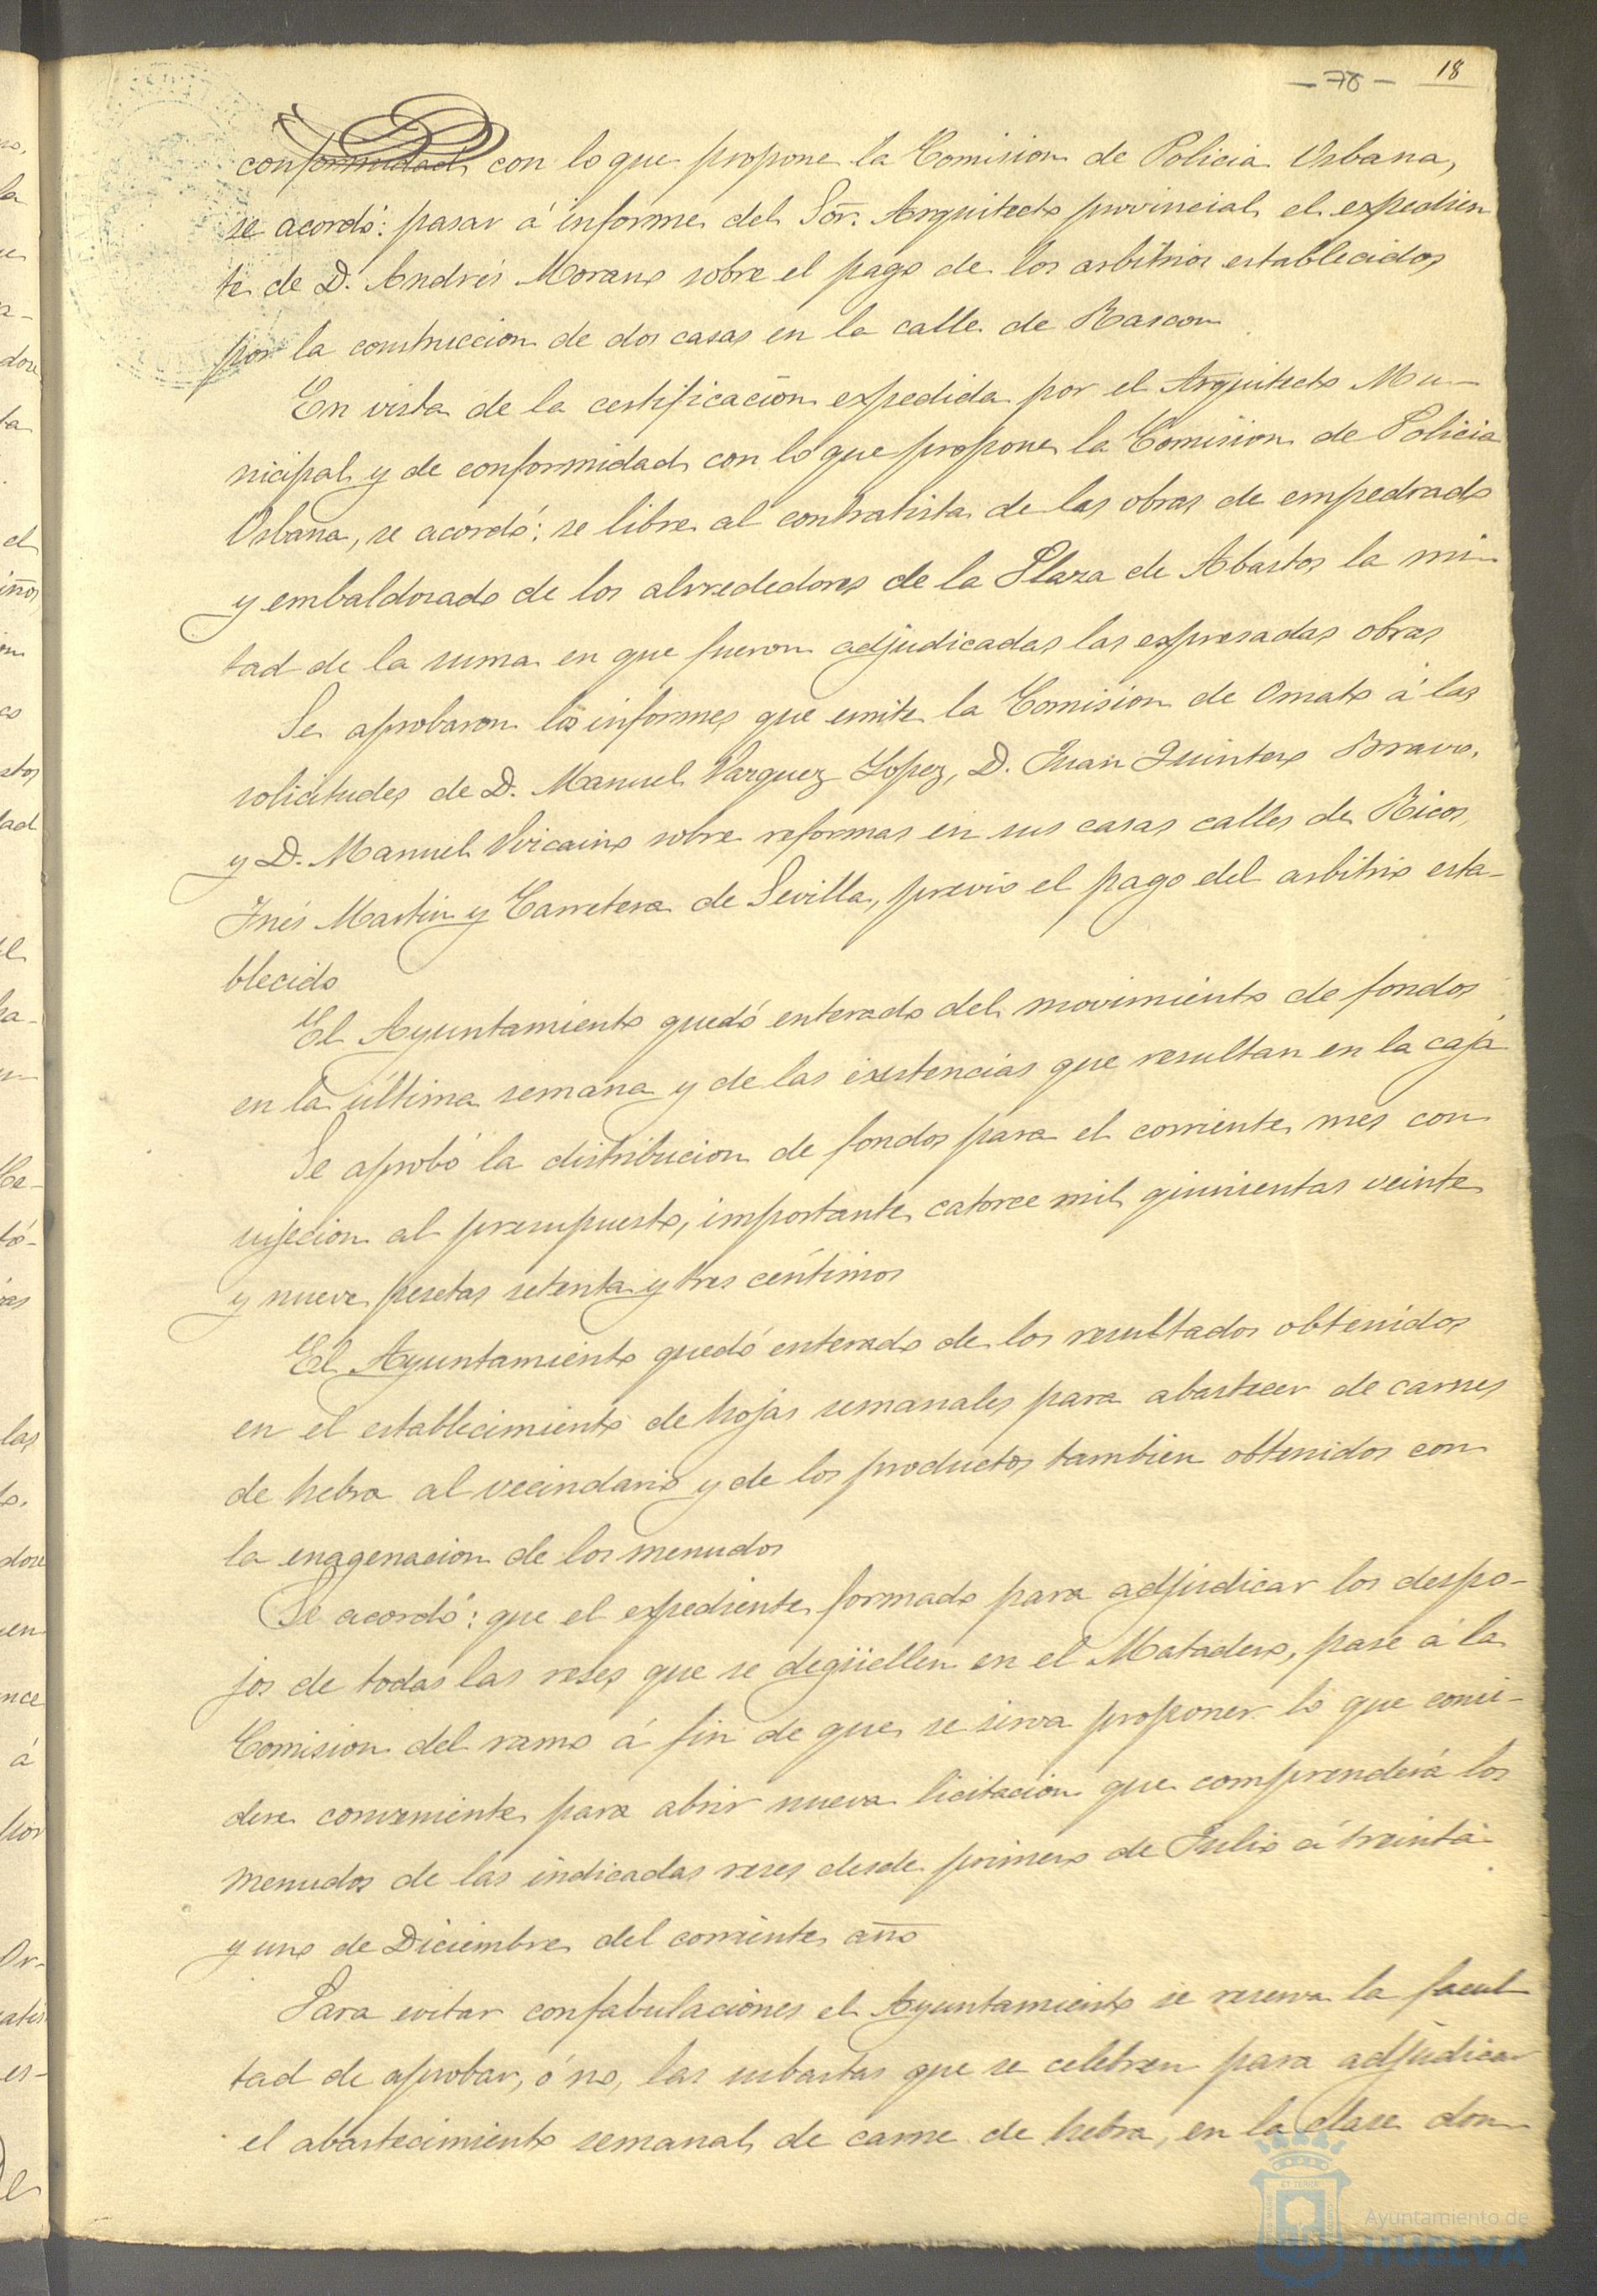 - 78 - 18
conformidad con lo que propone la Comision de Policia Urbana,
se acordó: pasar á informe del Sōr. Arquitecto provincial el expedien
te de D. Andrés Morano sobre el pago de los arbitrios establecidos
por la construccion de dos casas en la calle de Rascon
En vista de la certificación expedida por el Arquitecto Mu-
nicipal y de conformidad con lo que propone la Comision de Policia
Urbana, se acordó: se libre al contratista de las obras de empedrado
y embaldosado de los alrrededores de la Plaza de Abastos la mi-
tad de la suma en que fueron adjudicadas las expresadas obras
Se aprobaron los informes que emite la Comision de Ornato á las
solicitudes de D. Manuel Vazquez Lopez, D. Juan Quintero Bravo,
y D. Manuel Vizcaino sobre reformas en sus casas calles de Ricos,
Inés Martin y Carretera de Sevilla, previo el pago del arbitrio esta-
blecido
El Ayuntamiento quedó enterado del movimiento de fondos
en la última semana y de las existencias que resultan en la caja
Se aprobó la distribucion de fondos para el corriente mes con
sujecion al presupuesto, importante catorce mil quinientas veinte
y nueve pesetas setenta y tres céntimos
El Ayuntamiento quedó enterado de los resultados obtenidos
en el establecimiento de hojas semanales para abastecer de carnes
de hebra al vecindario y de los productos tambien obtenidos con
la enagenacion de los menudos
Se acordó: que el expediente formado para adjudicar los despo-
jos de todas las reses que se degüellen en el Matadero, pase á la
Comision del ramo á fin de que se sirva proponer lo que consi-
dere conveniente para abrir nueva licitación que comprenderá los
menudos de las indicadas reses desde primero de Julio á treinta
y uno de Diciembre del corriente año
Para evitar confabulaciones el Ayuntamiento se reserva la facul
tad de aprobar, ó no, las subastas que se celebren para adjudicar
el abastecimiento semanal de carne de hebra, en la clase don
Ayuntamiento de
HUELVA